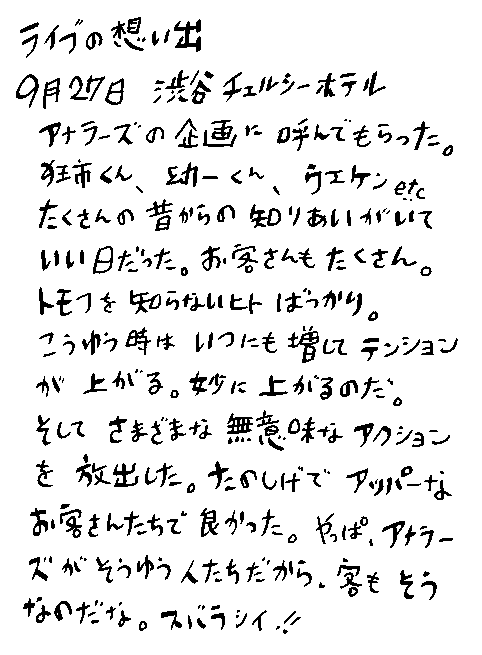 ライブの想い出
9月27日 渋谷チェルシーホテル
アナラーズの企画に呼んでもらった。
狂市くん、幼一くん、ウエケンetc
たくさんの昔からの知りあいがいて
いい日だった。お客さんもたくさん。
トモフを知らないヒトばっかり。
こうゆう時はいつにも増してテンション
が上がる。妙に上がるのだ。
そしてさまざまな無意味なアクション
を放出した。たのしげでアッパーな
お客さんたちで良かった。やっぱ、アナラー
ズがそうゆう人たちだから、客もそう
なのだな。スバラシイ!!